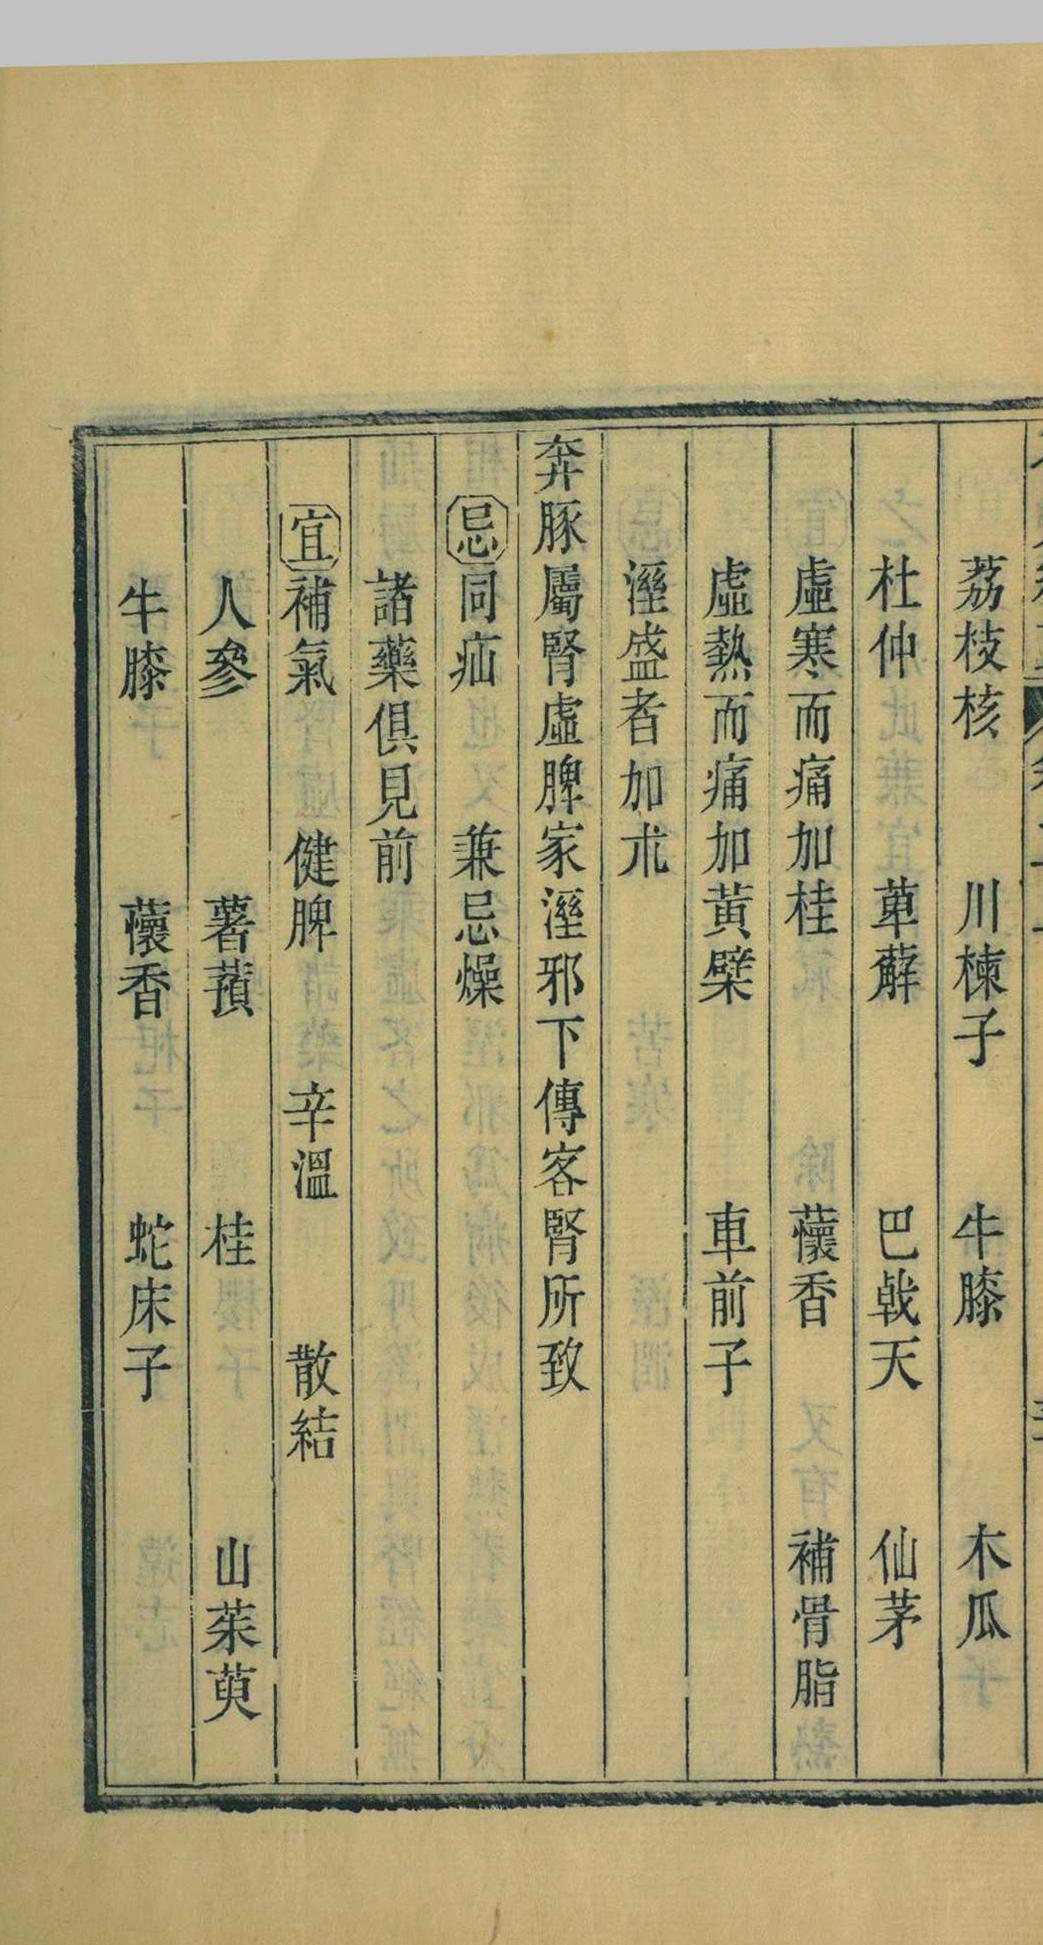 荔枝核　川楝子　牛膝　木瓜
杜仲　萆薢　巴戟天　仙茅
虛寒而痛加桂　蘹香　補骨脂
虛熱而痛加黃蘗　車前子
溼盛者加朮
奔豚屬腎虛脾家溼邪下傳客腎所致
忌同疝　兼忌燥
諸藥俱見前
宜補氣　健脾　辛溫　散結
人參　薯蕷　桂　山茱萸
牛膝　蘹香　蛇床子